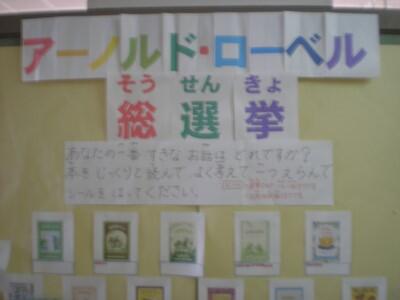 アーノルド・ローベル
そう せん きょ
総 選 挙
あなたの一番 すきな お話は どれですか?
本を じっくりと 読んで よく考えて 一つえらんで
シールを はってください。